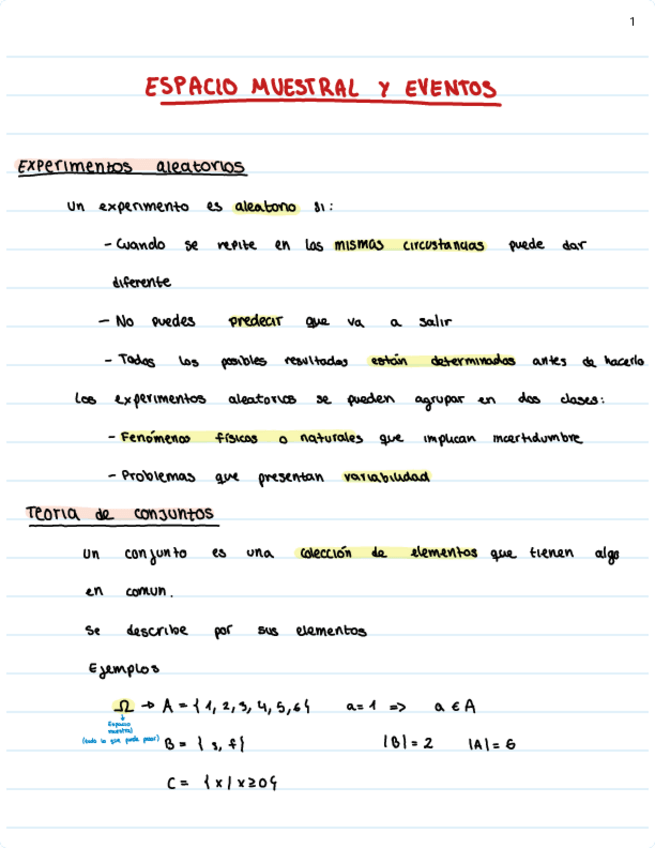 1
ESPACIO MUESTRAL Y EVENTOS
Experimentos aleatorios
Un experimento es aleatorio si:
- Cuando se repite en las mismas circustancias puede dar
diferente
- No puedes predecir que va a salir
- Todos los posibles resultados están determinados antes de hacerlo
Los experimentos aleatorios se pueden agrupar en dos clases:
- Fenómenos físicos o naturales que implican incertidumbre
- Problemas que presentan variabilidad
Teoria de conjuntos
Un conjunto es una colección de elementos que tienen algo
en comun.
Se describe por sus elementos
Ejemplos
Ω → A = {1, 2, 3, 4, 5, 6} a = 1 => a ∈ A
Espacio
muestral
(todo lo que puede pasar)
B = {s, f} |B| = 2 |A| = 6
C = {x / x ≥ 0}